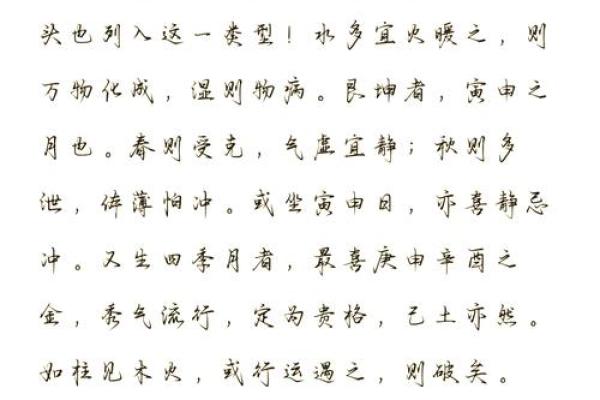 头也列入这一类型！水多宜火暖之，则
万物化成，湿则物病。艮坤者，寅申之
月也。春则受克，气虚宜静；秋则多
泄，体薄怕冲。或坐寅申日，亦喜静忌
冲。又生四季月者，最喜庚申辛酉之
金，秀气流行，定为贵格，己土亦然。
如柱见木火，或行运遇之，则破矣。